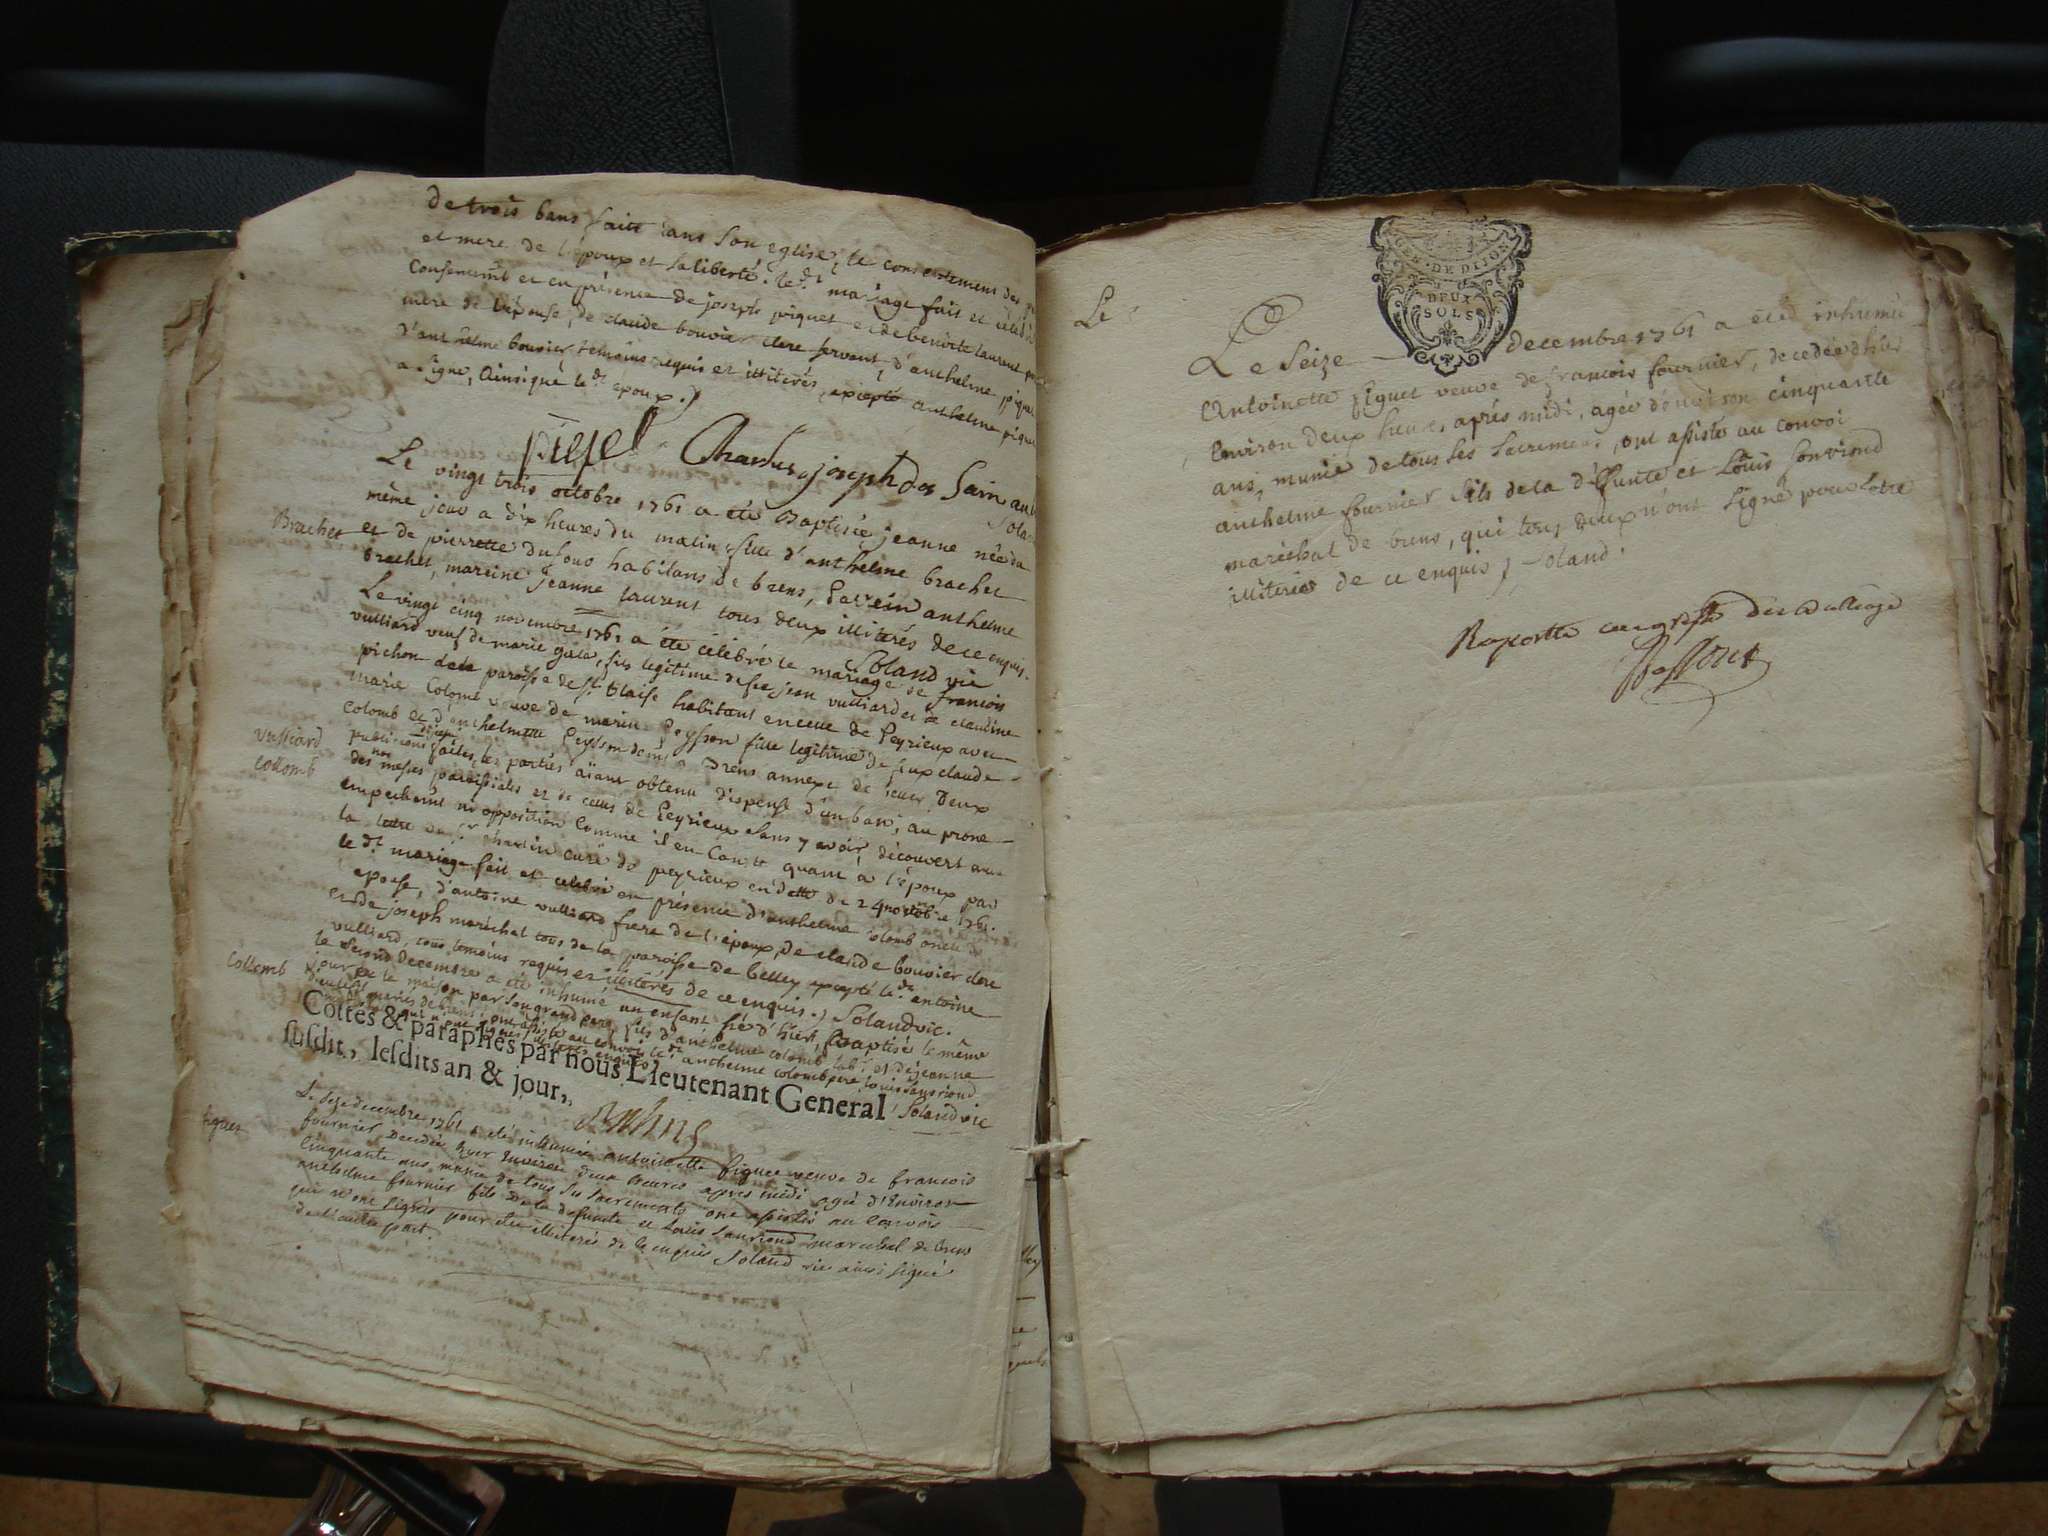 de trois bans faits dans son eglise, le consentement des
et mere de l'epoux et sa liberté. le dt mariage fait et celeb
consenemt et en présence de joseph piquet et de benoite laurent
mere de l'épouse, de claude bouvier clerc servant, d'anthelme pique
d'anthelme bouvier temoins requis et illiterés, excepté anthelme pique
a signé, ainsi que le dt epoux.
piquet Charles joseph dor
Le vingt trois octobre 1761 a été Baptisée jeanne née du
même jour a dix heures du matin fille d'anthelme brachet
Brachet
et de pierrette dufour habitans de brens, Parrein anthelme
brachet, mareine jeanne laurent tous deux illiterés de ce enquis.
Soland vic
Le vingt cinq novembre 1761 a été célébré le mariage de françois
vulliard veuf de marie gala, fils legitime de feu jean vulliard et de claudine
pichon de la paroisse de St blaise habitant en celle de Peyrieux avec
marie Colomb veuve de marin Peysson fille legitime de feux claude
colomb et d'anthelmette Peysson dems a Brens annexe de
vulliard
collomb
publications faites, les parties aïant obtenu dispense d'un ban, au prone
des messes paroissiales et de celles de Peyrieux sans y avoir découvert aucun
empechemt ni opposition comme il en conste quant à l'époux par
la lettre du Sr curé de peyrieux en datte du 24 novembre 1761.
le dt mariage fait et celebré en présence d'anthelme colomb oncle de
l'epouse, d'antoine vulliard frere de l'epoux, de claude bouvier clerc
et de joseph maréchal tous de la paroisse de belley excepté le dt antoine
vulliard, tous temoins requis et illiterés de ce enquis. Soland vic.
Collomb
le second decembre a été inhumé un enfant né d'hier, Baptisé le même
jour a la maison par son grand pere, fils d'anthelme colomb labr et de jeanne
mariés de brens, ont assisté au convoi le dt anthelme colomb pere, louis sauriond
qui n'ont signés illiterés enquis
Soland vic
Cottés & paraphés par nous Lieutenant General
susdit, lesdits an & jour,
figuet
Le seze decembre 1761 a été inhumée antoinette figuet veuve de françois
fournier decedée hyer environ deux heures apres midi agée d'environ
cinquante ans, munie de tous les sacrements ont assistés au convois
anthelme fournier fils de la defunte et louis sauriond marechal de brens
qui n'ont signés pour etre illiterés de ce enquis Soland vic ainsi signé
de l'autre part.
GEN. DE DIJON
DEUX
SOLS
Le
Le Seize decembre 1761 a été inhumée
Antoinette figuet veuve de françois fournier, decedée d'hier
Environ deux heures après midi, agée d'environ cinquante
ans, munie de tous les sacremens, ont assisté au convoi
anthelme fournier fils de la d'Effunte et Louis sauriond
maréchal de brens, qui tous deux n'ont signé pour etre
illiteres de ce enquis, Soland.
Raportté au greffe du Balliage